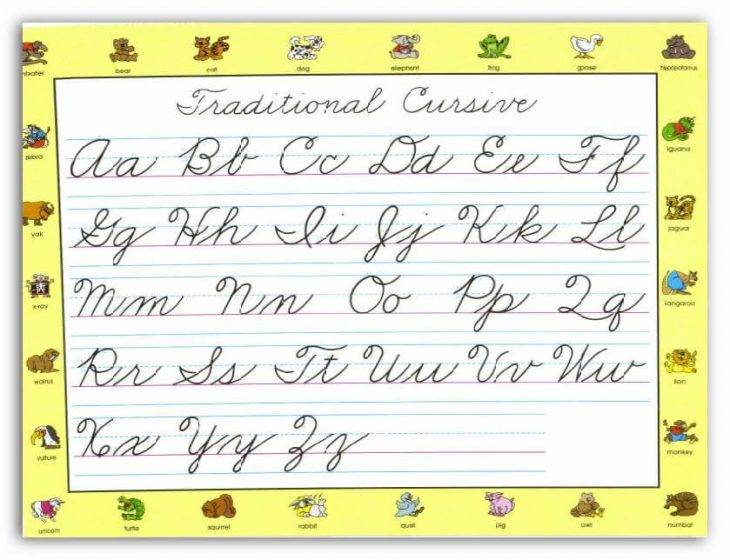 bear cat dog elephant frog goose hippopotamus
Traditional Cursive
zebra
Aa Bb Cc Dd Ee Ff
iguana
yak
Gg Hh Ii Jj Kk Ll
jaguar
x-ray
Mm Nn Oo Pp Qq
kangaroo
walrus
Rr Ss Tt Uu Vv Ww
lion
vulture
Xx Yy Zz
monkey
unicorn turtle squirrel rabbit quail pig owl numbat